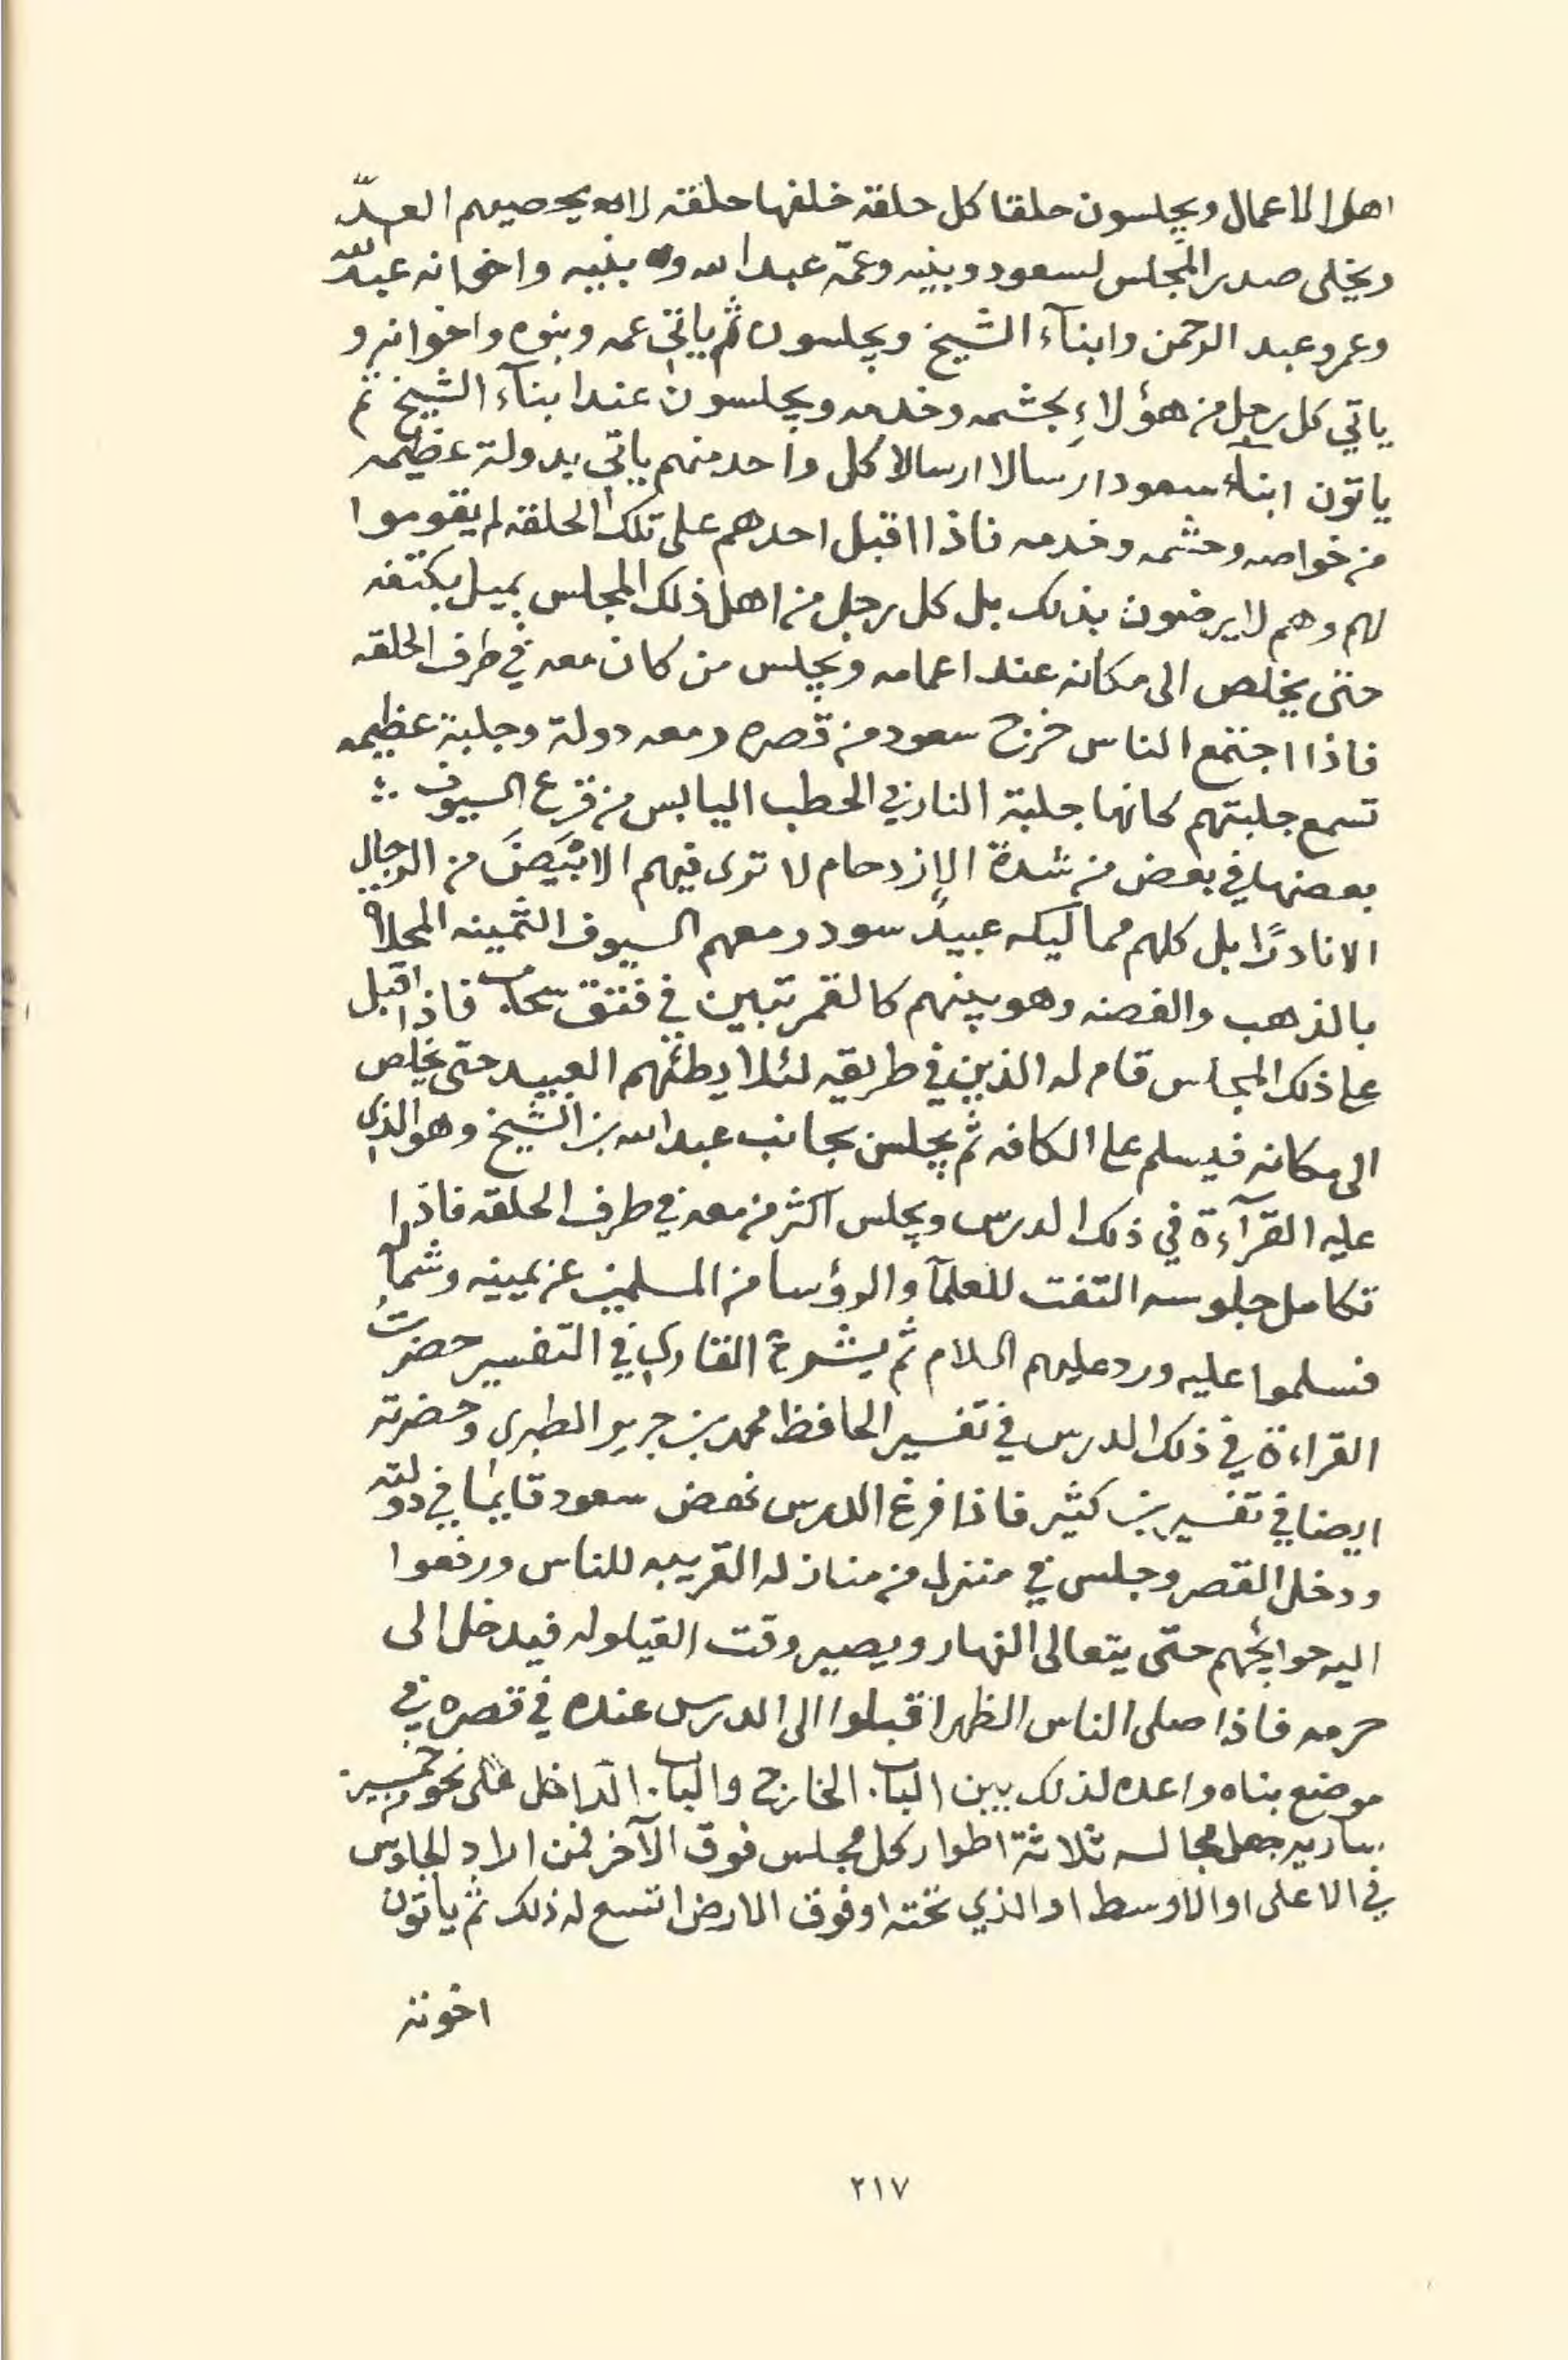 اهل الاعمال ويجلسون حلقا كل حلقة خلفها حلقة لا يحصيهم العدّ
ويخلى صدر المجلس لسعود وبنيه وعمّه عبدالله وبنيه واخوانه عبدالله
وعمر وعبد الرحمن وابنآء الشيخ ويجلسون ثم ياتي عمه وبنوه واخوانه و
ياتي كل رجل من هؤلاءِ بحشمه وخدمه ويجلسون عند ابنآء الشيخ ثم
ياتون ابنآء سعود ارسالا ارسالا كل واحد منهم ياتي بدولة عظيمه
من خواصه وحشمه وخدمه فاذا اقبل احدهم على تلك الحلقه لم يقوموا
لهم وهم لا يرضون بذلك بل كل رجل من اهل ذلك المجلس يميل بكتفه
حتى يخلص الى مكانه عند اعمامه ويجلس من كان معه في طرف الحلقه
فاذا اجتمع الناس خرج سعود من قصره ومعه دولة وجلبة عظيمه
تسمع جلبتهم كانها جلبة النار في الحطب اليابس من قرع السيوف
بعضها في بعض من شدة الازدحام لا ترى فيهم الابيض من الرجال
الا نادرًا بل كلهم مماليكه عبيدٌ سود ومعهم السيوف الثمينه المحلاة
بالذهب والفضه وهو بينهم كالقمر تبين في فتق سحاب فاذا اقبل
على ذلك المجلس قام له الذين في طريقه لئلا يطئهم العبيد حتى يخلص
الى مكانه فيسلم على الكافه ثم يجلس بجانب عبدالله بن الشيخ وهو الذي
عليه القرآءة في ذلك الدرس ويجلس اكثر من معه في طرف الحلقه فاذا
تكامل جلوسه التفت للعلمآ والرؤسا من المسلمين عن يمينه وشماله
فسلموا عليه ورد عليهم السلام ثم يشرع القاري في التفسير حضرتُ
القراءة في ذلك الدرس في تفسير الحافظ محمد بن جرير الطبري وحضرته
ايضا في تفسير بن كثير فاذا فرغ الدرس نهض سعود قايما في دولته
ودخل القصر وجلس في منزل من منازله القريبه للناس ورفعوا
اليه حوايجهم حتى يتعالى النهار ويصير وقت القيلوله فيدخل الى
حرمه فاذا صلى الناس الظهر اقبلوا الى الدرس عنده في قصره في
موضع بناه واعده لذلك بين الباب الخارج والباب الداخل على نحو خمسين
سارية جعل مجالسه ثلاثة اطوار كل مجلس فوق الآخر فمن اراد الجلوس
في الاعلى او الاوسط او الذي تحته او فوق الارض اتسع له ذلك ثم ياتون
اخوته
٢١٧